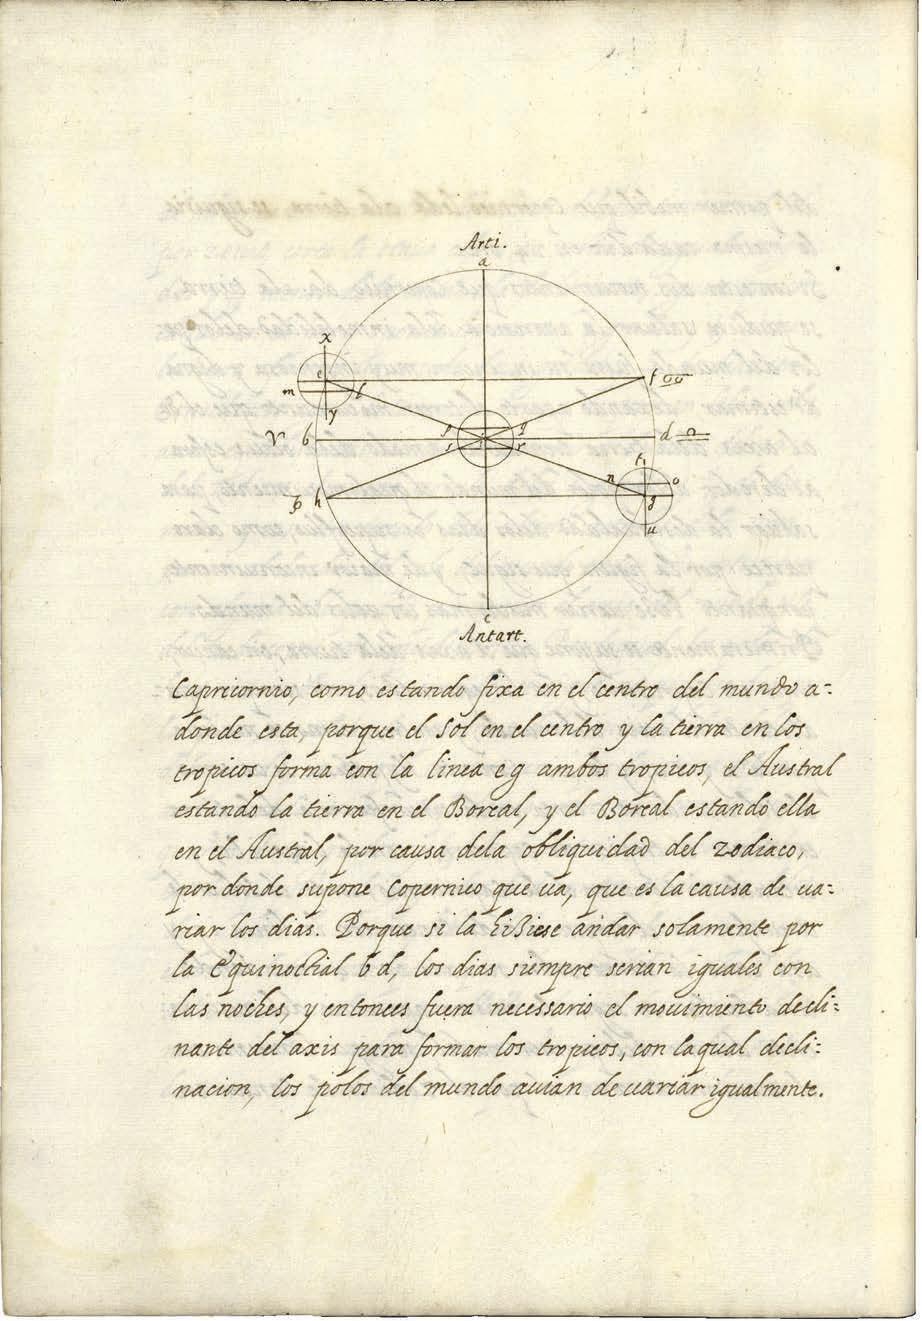 Arti.
a
x
e
f ♋
m l
y
♈ b p q d ♎
s r
t
n o
♑ h g
u
c
Antart.
Capricornio, como estando fixa en el centro del mundo a=
donde esta, porque el Sol en el centro y la tierra en los
tropicos forma con la linea eg ambos tropicos, el Austral
estando la tierra en el Boreal, y el Boreal estando ella
en el Austral, por causa dela obliquidad del zodiaco,
por donde supone Copernico que ua, que es la causa de ua=
riar los dias. Porque si la hiziese andar solamente por
la Equinoctial bd, los dias siempre serian iguales con
las noches, y entonces fuera necessario el mouimiento decli=
nante del axis para formar los tropicos, con laqual decli=
nacion, los polos del mundo auian de uariar igualmente.